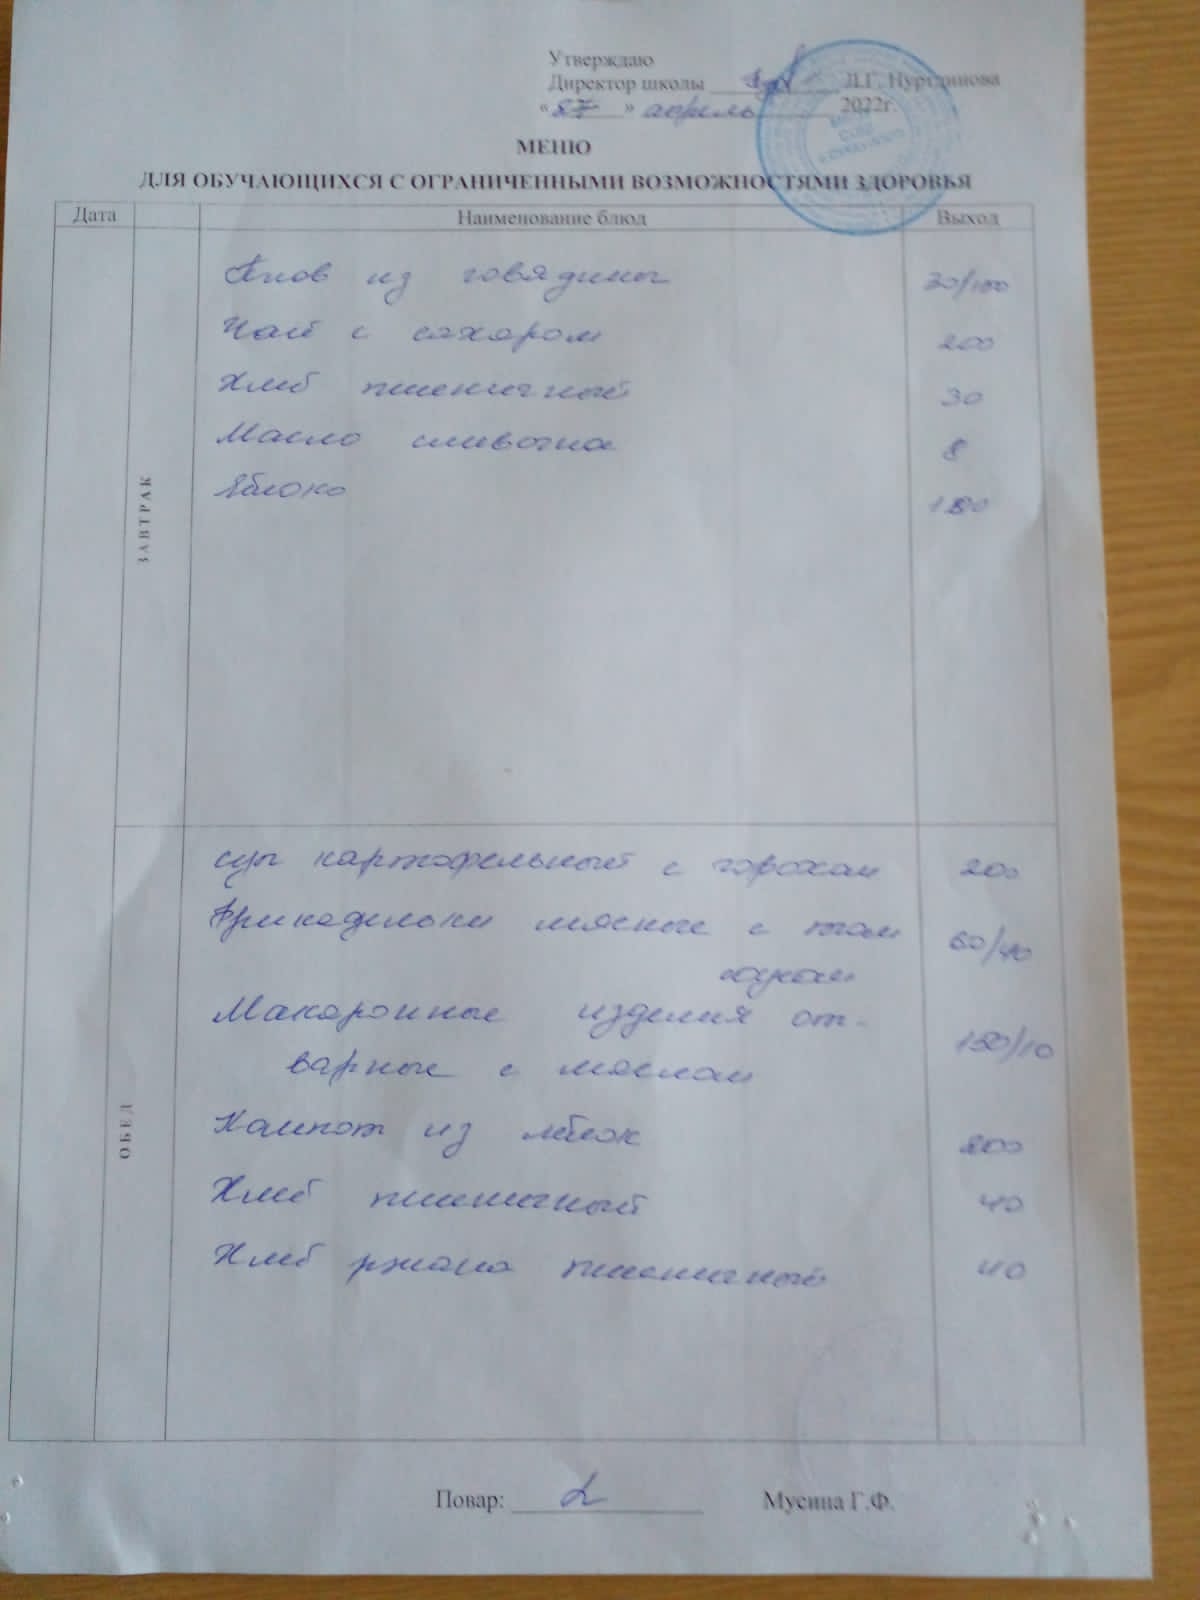 Утверждаю
Директор школы Л.Г. Нуртдинова
« 27 » апрель 2022г.
МЕНЮ
ДЛЯ ОБУЧАЮЩИХСЯ С ОГРАНИЧЕННЫМИ ВОЗМОЖНОСТЯМИ ЗДОРОВЬЯ
Дата Наименование блюд Выход
ЗАВТРАК
Плов из говядины 30/100
Чай с сахаром 200
Хлеб пшеничный 30
Масло сливочна 8
Яблоко 180
ОБЕД
суп картофельный с горохом 200
Фрикадельки мясные с том 60/40
соусом
Макаронные изделия от- 150/10
варные с маслом
Компот из яблок 200
Хлеб пшеничный 40
Хлеб ржано пшеничный 40
Повар: Мусина Г.Ф.